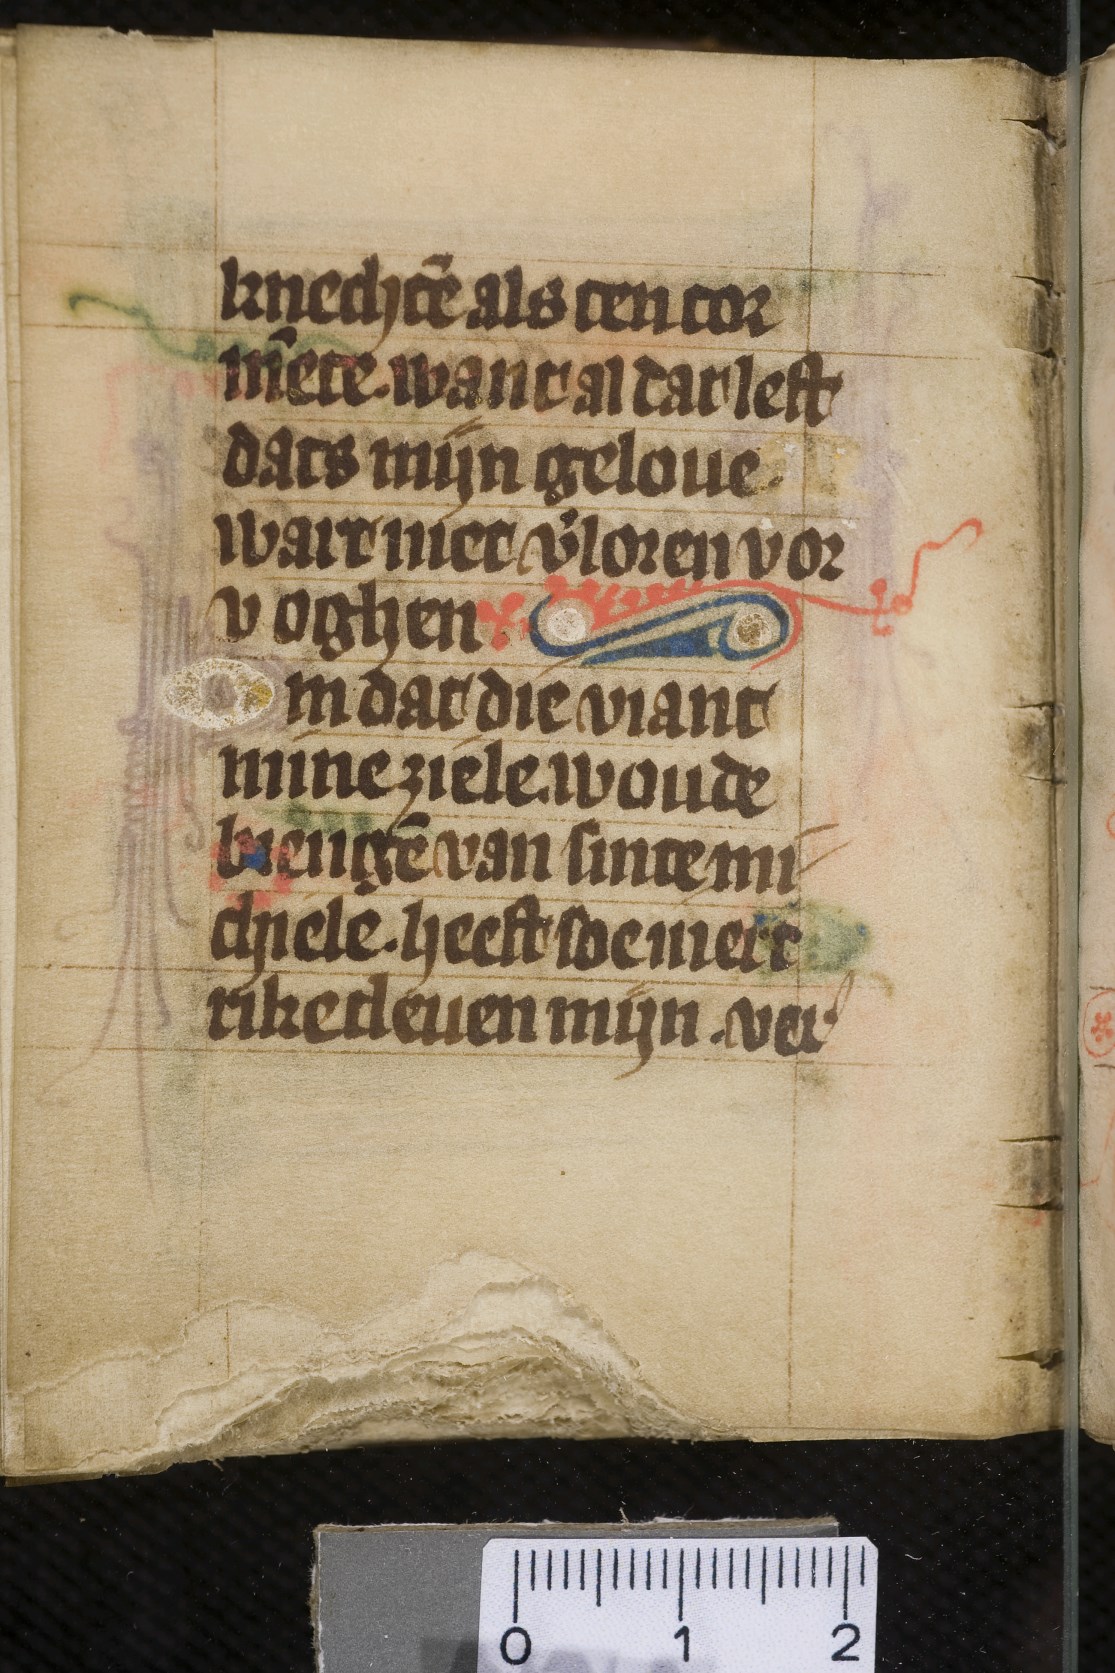 knechtē als ten tor
m̄ete. want al dat left
dats mijn geloue.
wart niet v̓loren vor
voghen.
m dat die viant
mine ziele. woude
biengē van sinte mi
chiele. heeft soe niert
rike cleuen mijn. ver
0 1 2